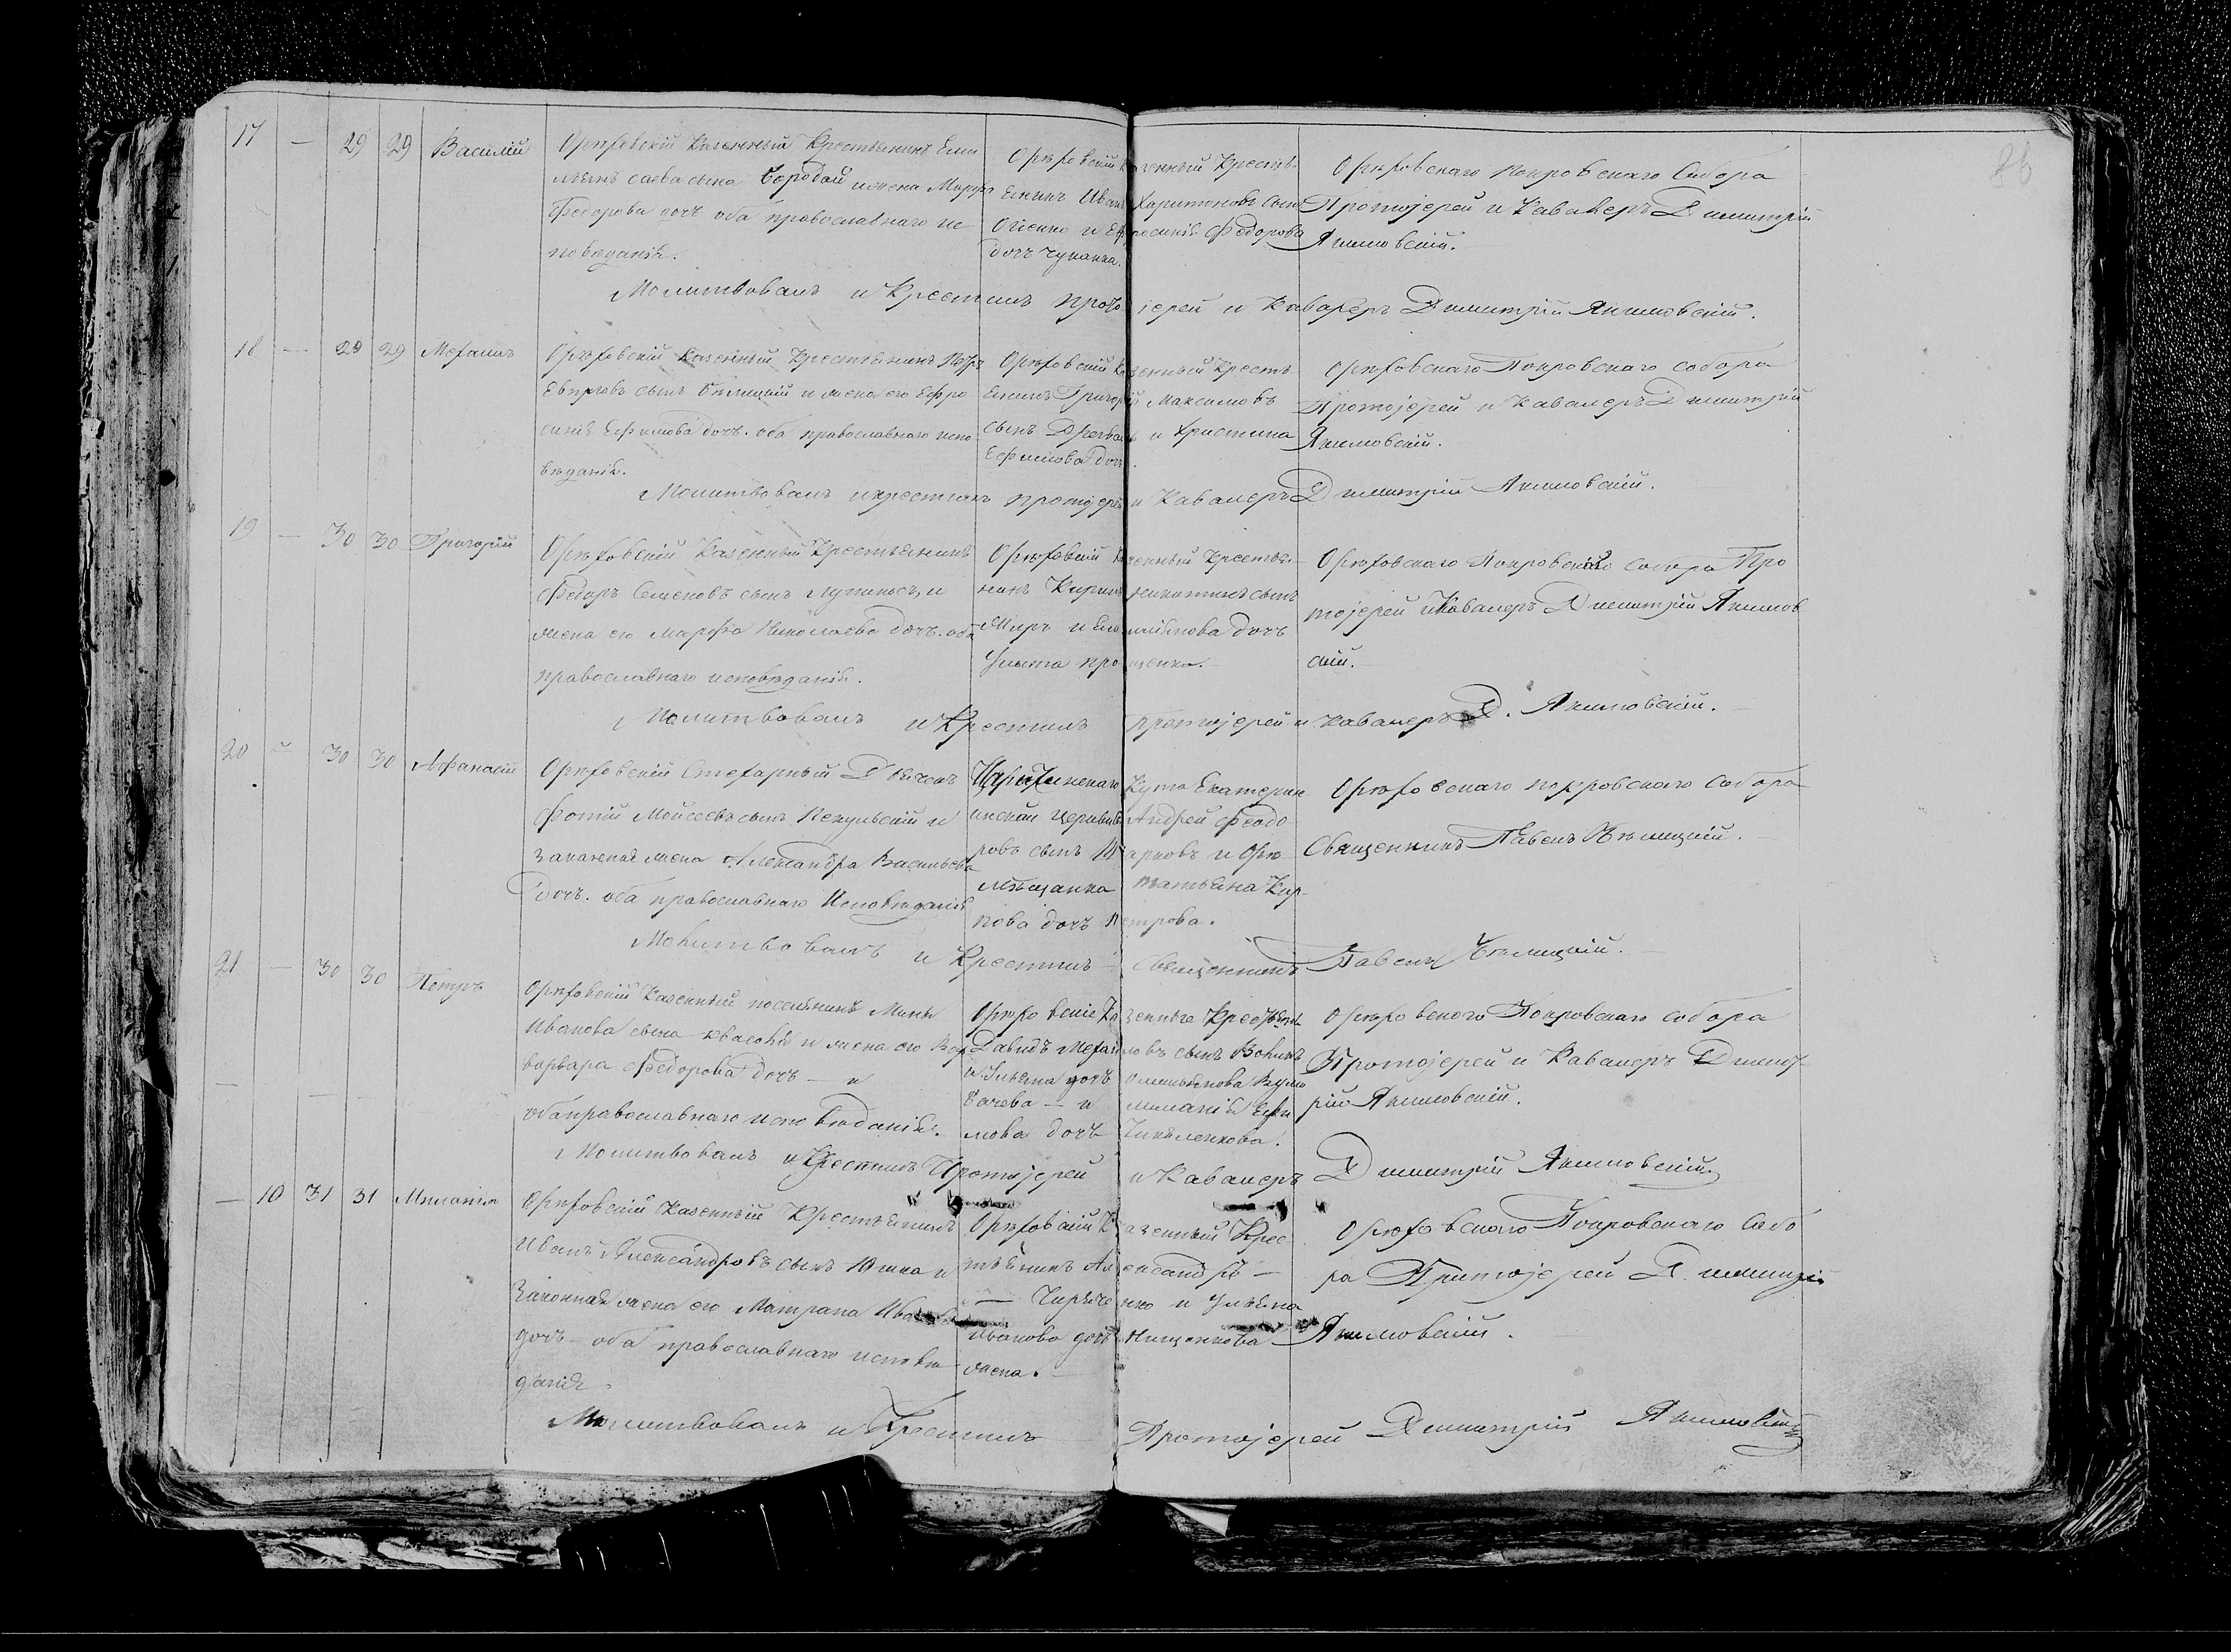 86
17 — 29 29 Василій
Орѣховскій Казенный Крестьянинъ Еми
льянъ савва сына Бородай и жена Марфа
Федорова дочь оба православнаго ис
повѣданія.
Орѣховскій Казенный Кресть
янинъ Иванъ Харитоновъ сынъ
и Ефросинія Федорова
дочь Чуканка.
Орѣховскаго Покровскаго Собора
Протоіерей и Кавалеръ Димитрій
Якимовскій.
Молитвовалъ и Крестилъ протоіерей и Кавалеръ Димитрій Якимовскій.
18 — 29 29 Мефалъ
Орѣховскій Казенный Крестьянинъ Петръ
сынъ Бѣлицкій и жена его Ефро
синія Ефимова дочь. оба православнаго испо
вѣданія.
Орѣховскій Казенный Кресть
янинъ Григорій Максимовъ
сынъ и Христина
Ефимова дочь.
Орѣховскаго Покровскаго собора
Протоіерей и Кавалеръ Димитрій
Якимовскій.
Молитвовалъ и крестилъ протоіерей и Кавалеръ Димитрій Якимовскій.
19 — 30 30 Григорій
Орѣховскій Казенный Крестьянинъ
Федоръ Семеновъ сынъ и
жена его Марфа Николаева дочь. оба
православнаго исповѣданія.
Орѣховскій Казенный Крестья
нинъ Кирилъ Никитинъ сынъ
Миръ и Емиліянова дочь
Орѣховскаго Покровскаго собора Про
тоіерей и Кавалеръ Димитрій Якимов
скій.
Молитвовалъ и Крестилъ Протоіерей и Кавалеръ Д. Якимовскій.
20 — 30 30 Афанасій
Орѣховскій
Фотій Мойсеевъ сынъ и
законная жена Александра Васильева
дочь. оба православнаго Исповѣданія
Кута Екатерин
инской церкви Андрей Феодо
ровъ сынъ и Орѣ
мѣщанка татьяна Кар
пова дочь Петрова.
Орѣховскаго покровскаго Собора
Священникъ Павелъ Бѣлицкій.
Молитвовалъ и Крестилъ — Священникъ Павелъ Бѣлицкій.
21 — 30 30 Петръ
Орѣховскій Казенный поселянинъ Мина
Иванова сына и жена его Вар
варвара Федорова дочь — и
оба православнаго исповѣданія.
Орѣховскіе Казенные Крестьяне
Давидъ сынъ
и Ульяна дочь
— и Ефи
мова дочь
Орѣховскаго Покровскаго собора
Протоіерей и Кавалеръ Димит
рій Якимовскій.
Молитвовалъ и Крестилъ Протоіерей и Кавалеръ Димитрій Якимовскій
— 10 31 31 Миланія
Орѣховскій Казенный Крестьянинъ
Иванъ Александровъ сынъ Юшка и
Законная жена его Матрона Иванова
дочь — оба православнаго исповѣ
данія
Орѣховскій Казенный Крес
тьянинъ Александръ —
— и Ульяна
Иванова дочь Нищенкова
жена.
Орѣховскаго Покровскаго Собо
ра Протоіерей Димитрій
Якимовскій.
Молитвовалъ и Крестилъ Протоіерей Димитрій Якимовскій